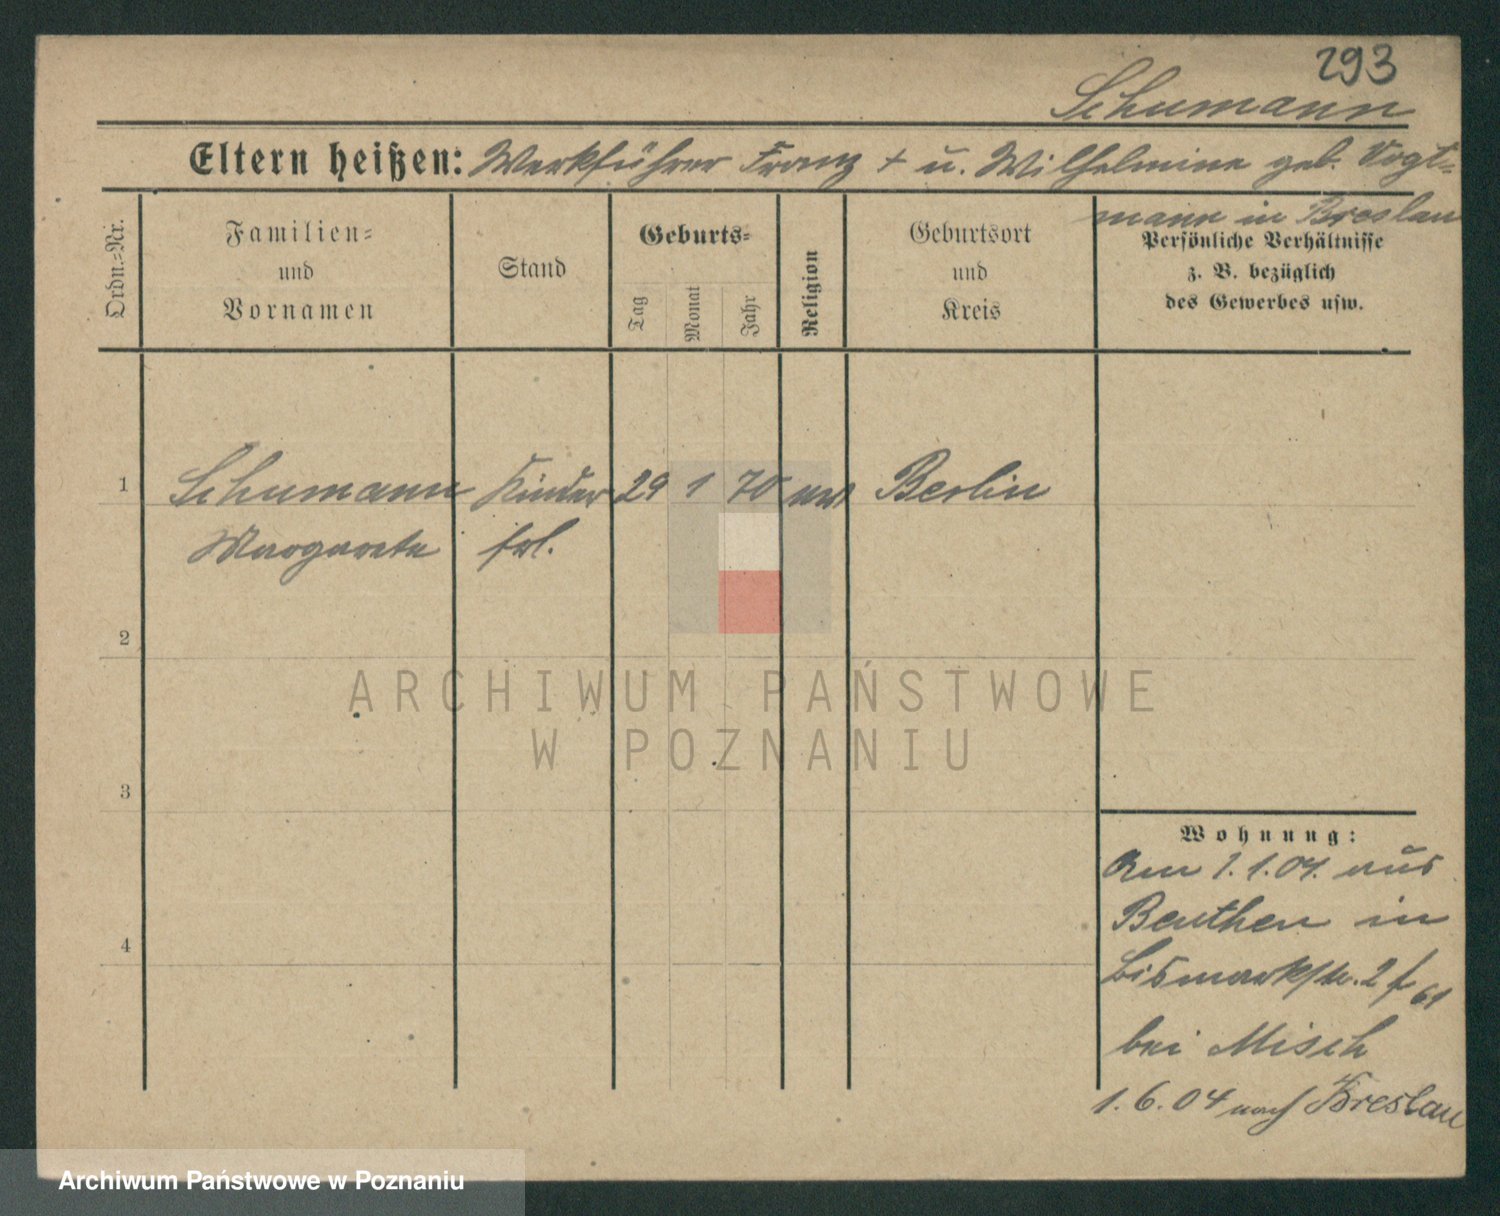 293
Schumann
Eltern heißen: Werkführer Franz + u. Wilhelmine geb. Vogt-
mann in Breslau
Ordn.-Nr.
Familien-
und
Vornamen
Stand
Geburts-
Tag
Monat
Jahr
Religion
Geburtsort
und
Kreis
Persönliche Verhältnisse
z. B. bezüglich
des Gewerbes usw.
1 Schumann Kinder 29 1 70 Berlin
Margarete frl.
2
3
4
Wohnung:
Am 1.1.04. aus
Beuthen in
Bismarkstr. 2
bei Misch
1.6.04 nach Breslau
ARCHIWUM PAŃSTWOWE
W POZNANIU
Archiwum Państwowe w Poznaniu